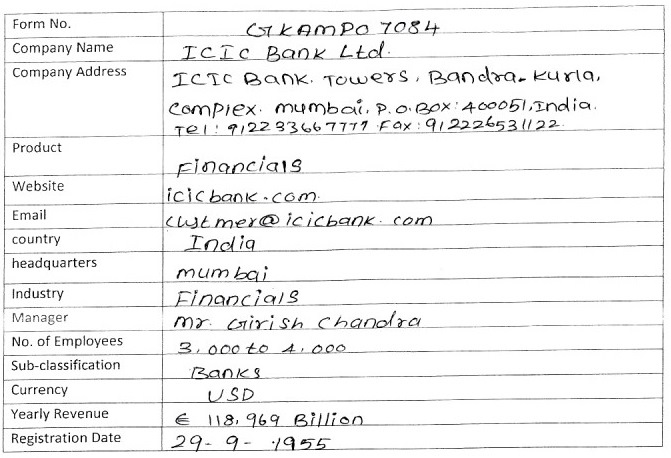 Form No. GKAMPO 7084
Company Name ICIC Bank Ltd.
Company Address ICIC Bank. Towers, Bandra-Kurla,
Complex. mumbai, P.O.Box: 400051, India.
Tel: 912233667777 Fax: 912226531122
Product
Financials
Website
icicbank.com.
Email
custmer@icicbank.com
country
India
headquarters
mumbai
Industry
Financials
Manager
Mr. Girish Chandra
No. of Employees
3,000 to 4,000
Sub-classification
Banks
Currency
USD
Yearly Revenue
€ 118,969 Billion
Registration Date
29-9-1955